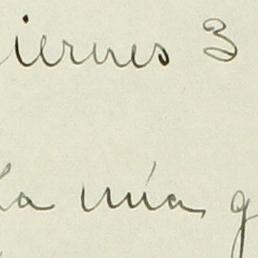 iernes 3
la mía g